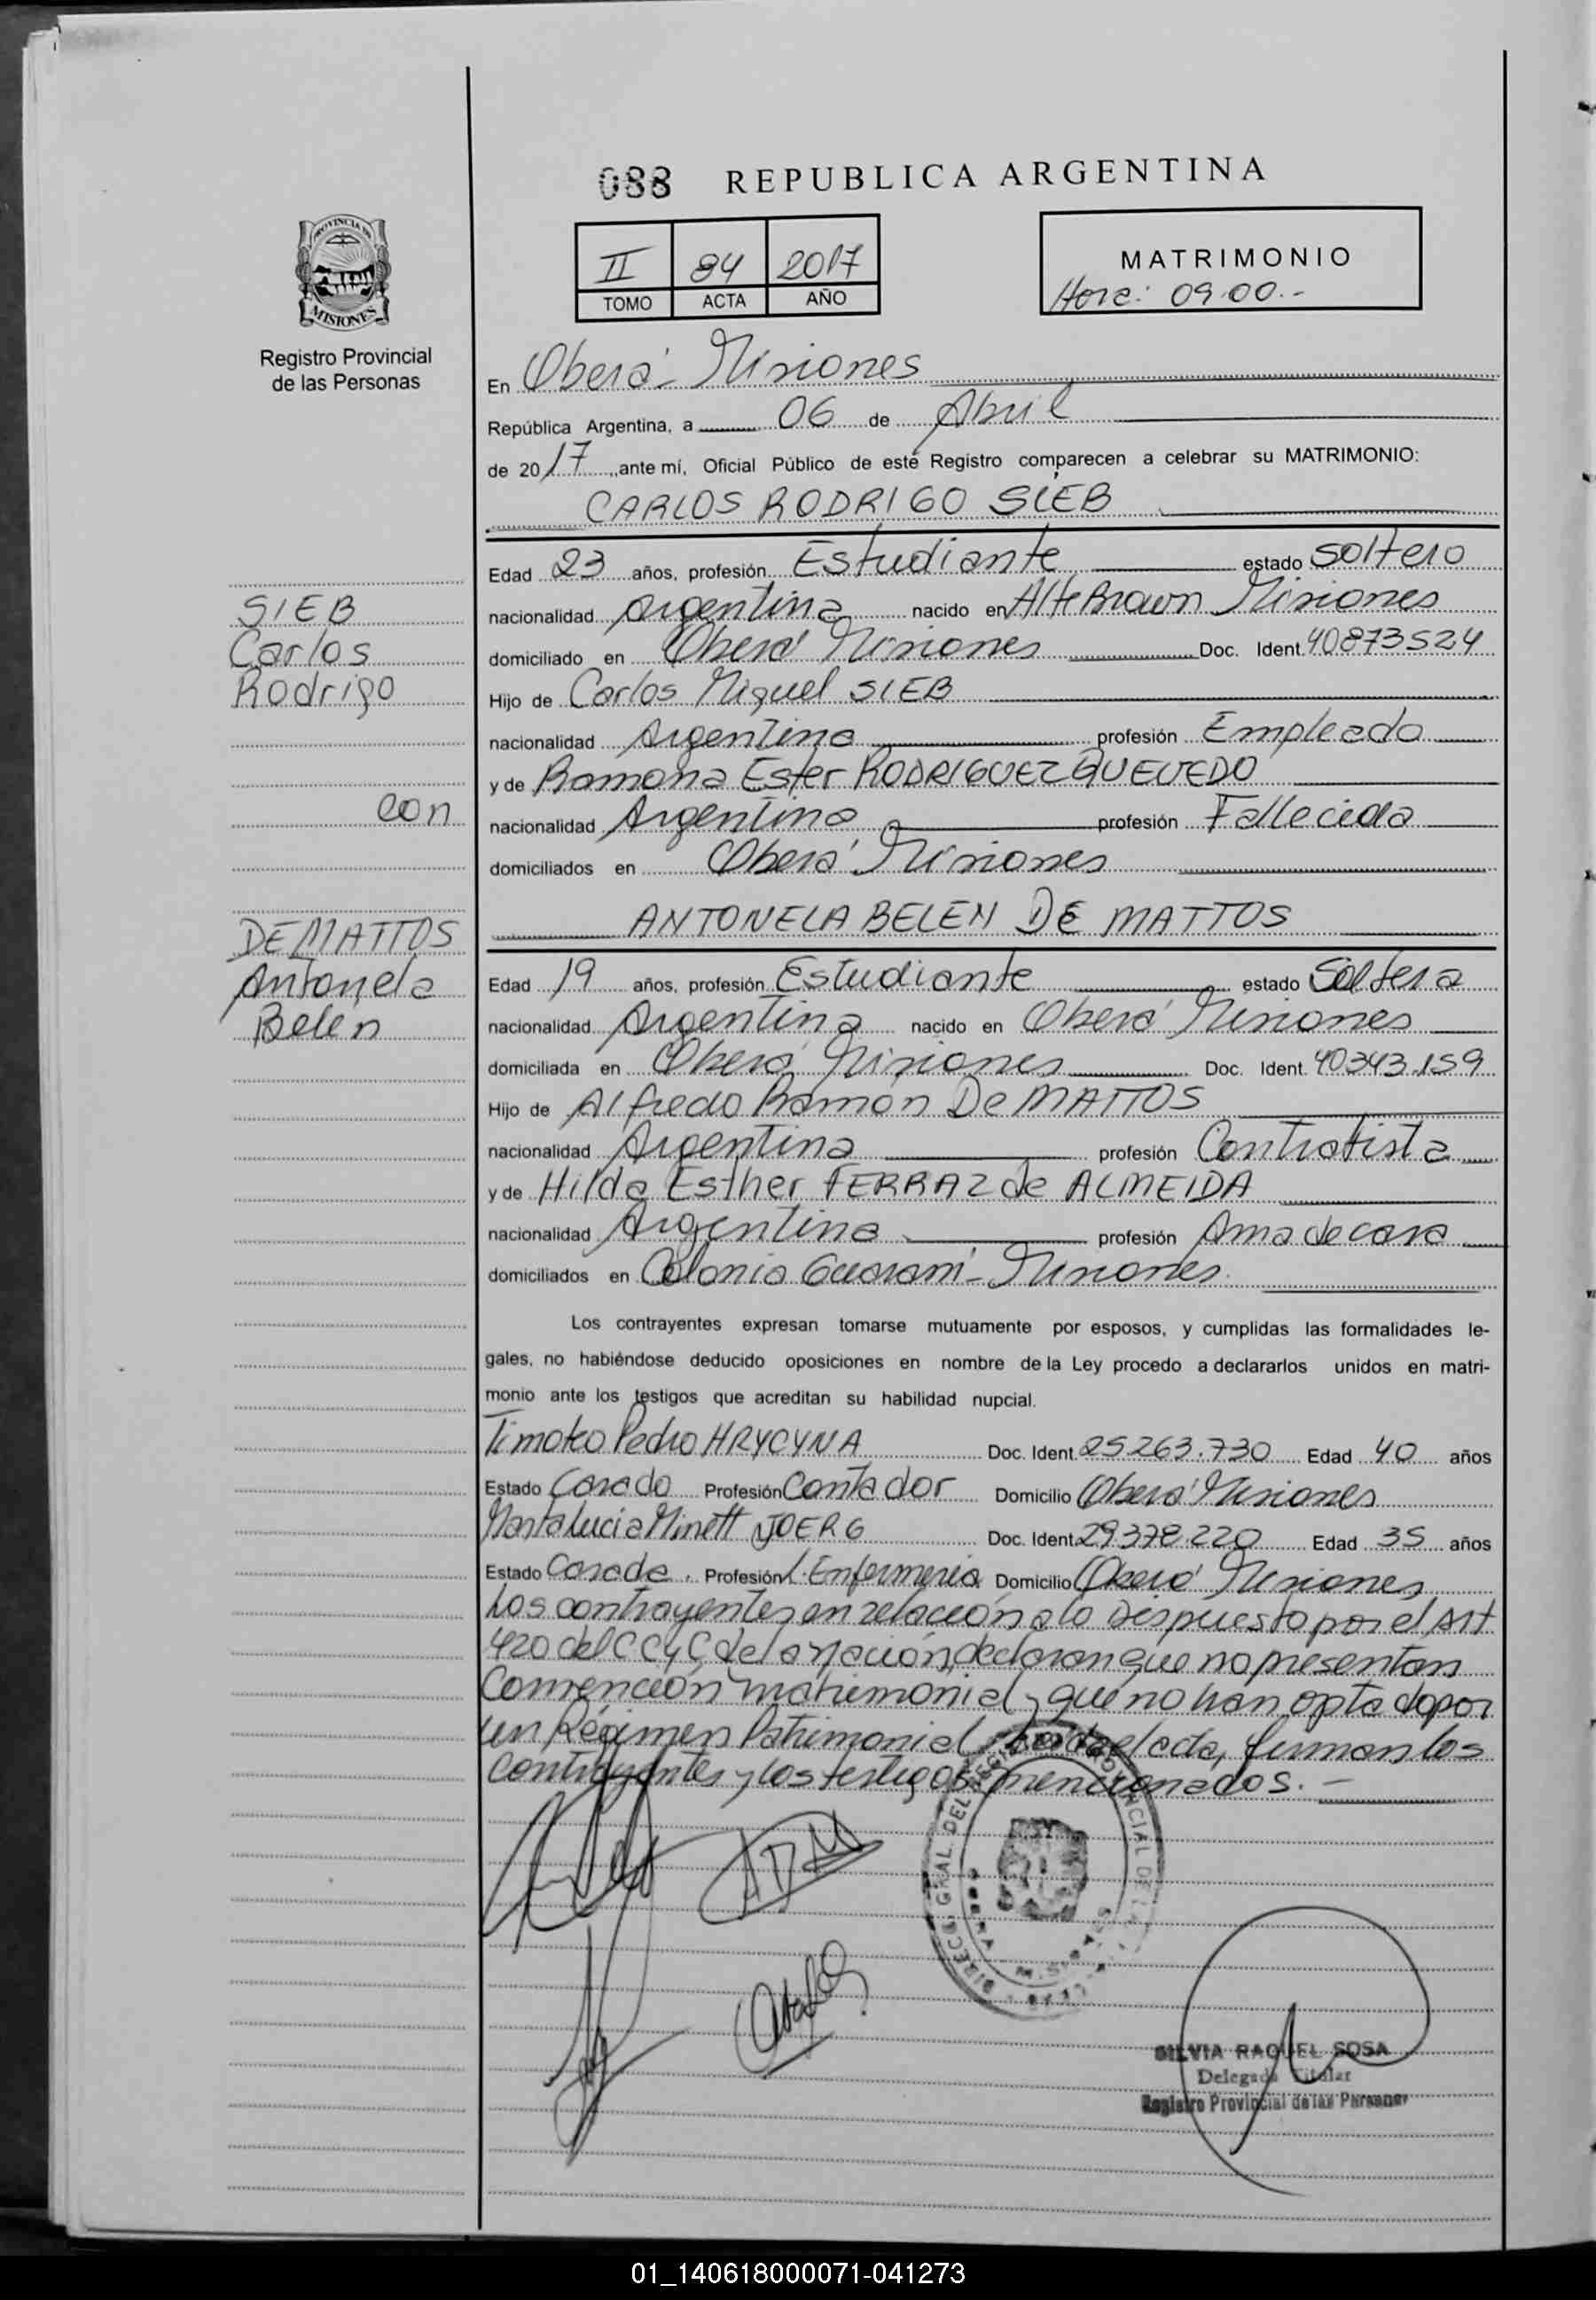 088 REPUBLICA ARGENTINA
II 84 2017
TOMO ACTA AÑO
MATRIMONIO
Hora: 09.00.-
PROVINCIA DE
MISIONES
Registro Provincial
de las Personas
En Oberá - Misiones
República Argentina, a 06 de Abril
de 2017, ante mí, Oficial Público de este Registro comparecen a celebrar su MATRIMONIO:
CARLOS RODRIGO SIEB
Edad 23 años, profesión Estudiante estado soltero
nacionalidad Argentina nacido en Alte Brown Misiones
domiciliado en Oberá Misiones Doc. Ident. 40873524
Hijo de Carlos Miguel SIEB
nacionalidad Argentina profesión Empleado
y de Ramona Ester RODRIGUEZ QUEVEDO
nacionalidad Argentina profesión Fallecida
domiciliados en Oberá Misiones
SIEB
Carlos
Rodrigo
con
DE MATTOS
Antonela
Belén
ANTONELA BELEN DE MATTOS
Edad 19 años, profesión Estudiante estado Soltera
nacionalidad Argentina nacido en Oberá Misiones
domiciliada en Oberá Misiones Doc. Ident. 40343.159
Hijo de Alfredo Ramón De MATTOS
nacionalidad Argentina profesión Contratista
y de Hilda Esther FERRAZ de ALMEIDA
nacionalidad Argentina profesión Ama de casa
domiciliados en Colonia Guaraní - Misiones
Los contrayentes expresan tomarse mutuamente por esposos, y cumplidas las formalidades le-
gales, no habiéndose deducido oposiciones en nombre de la Ley procedo a declararlos unidos en matri-
monio ante los testigos que acreditan su habilidad nupcial.
Timoteo Pedro HRYCYNA Doc. Ident. 25.263.730 Edad 40 años
Estado Casado Profesión Contador Domicilio Oberá Misiones
Marta Lucia Minett JOERG Doc. Ident. 29.378.220 Edad 35 años
Estado Casada. Profesión L. Enfermeria Domicilio Oberá Misiones
Los contrayentes en relación a lo Dispuesto por el Art
420 del CCyC de la nación, declaran que no presentan
Convención matrimonial y que no han optado por
un Régimen Patrimonial, leida el acta, firman los
contrayentes y los testigos mencionados. -
SILVIA RAQUEL SOSA
Delegada Titular
Registro Provincial de las Personas
01_140618000071-041273